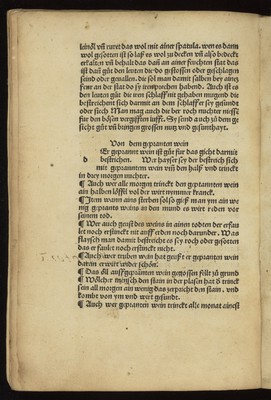 lund vñ ruret das wol mit ainer spatula. wen es dann
wol gesoten ist so laß es wol zu decken vñ also bedeckt
erkalten vñ behalt das dañ an ainer feuchten stat das
ist dañ gůt den leuten die do gestossen oder geschlagen
seind oder geuallen. die sol man damit salben bey ainez
feur an der stat do sy
haben d. Auch ist es
den leuten gůt die iren schlaff nit gehaben mugend die
bestreichent sich daran an dem schlaff er sy gesůnt
oder siech Man mag auch die her noch nuczten nüsse
für den bösen vergifften lufft. Sy seind auch zů dem ge
sicht gůt vñ bungen grossen nutz vnd gesunthayt.
Von dem geprantten wein
Er geprannt wein ist gůt für das gicht damit
b bestrichen. Wer hayser sey der bestreich sich
mit geprantem wein vm den halß vnd trinck
in drey morgen nuchter.
¶ Auch wer alle morgen trinckt den geprantten wein
ain halben löffel vol der wirt nymmer kranck.
¶ Item wann ains sterben sol so gieß man ym ain we
nig geprants weins in den mund es wirt reden vor
seinem tod.
¶ Wer auch geüst des weins in ainen
der er fau
let noch erstinckt nit auff erden noch darunder. Was
flaysch man damit besticht es sey roch oder gesotten
das er faulet noch erstinckt nicht.
¶ Auch wer truben wein hat geüst er geprantten wein
darein er wirt wider schön.
¶ Das öll auff geprantten wein gegossen felt zů grund
¶ Wölcher mensch den stain in der plasen hat d trinck
sein all morgen ain wenig das zerpricht den stain. vnd
kombt von ym vnd wirt gesundt.
¶ Auch wer geprantten wein trinckt alle monat ainest